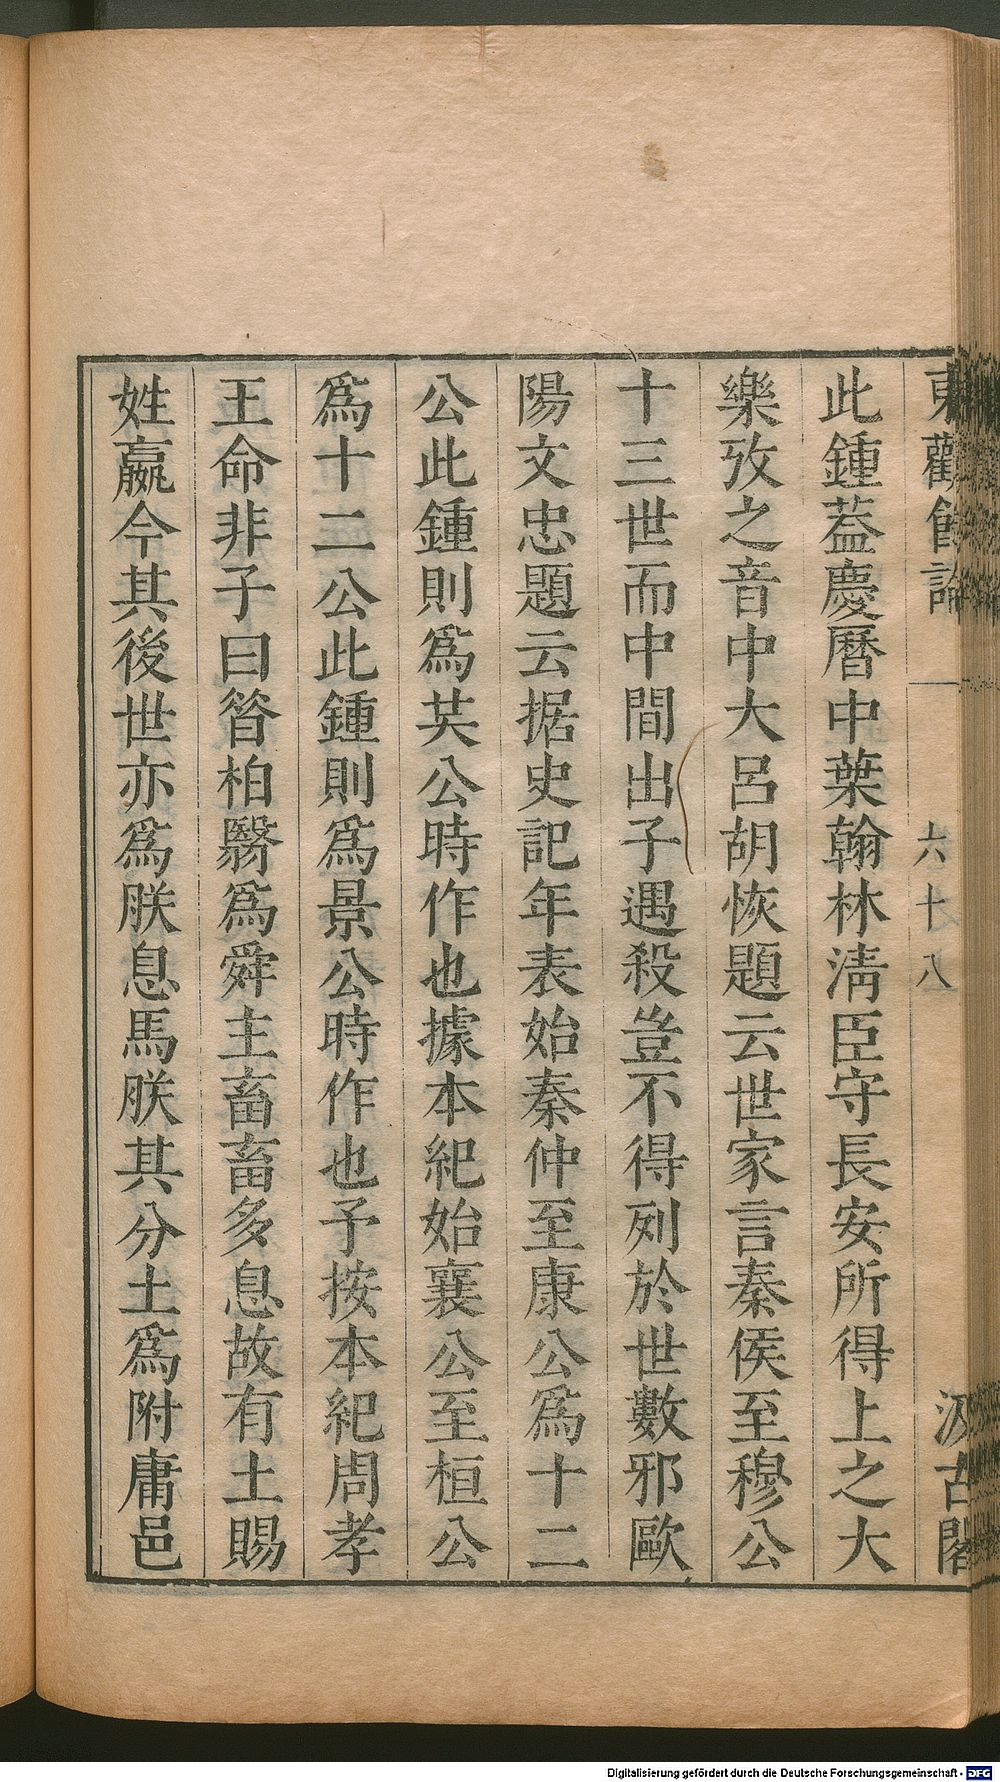 東觀餘論
六十八
汲古閣
此鍾葢慶曆中葉翰林淸臣守長安所得上之大
樂攷之音中大呂胡恢題云世家言秦侯至穆公
十三世而中間出子遇殺豈不得列於世數邪歐
陽文忠題云据史記年表始秦仲至康公爲十二
公此鍾則爲共公時作也據本紀始襄公至桓公
爲十二公此鍾則爲景公時作也予按本紀周孝
王命非子曰昝柏翳爲舜主畜畜多息故有土賜
姓嬴今其後世亦爲朕息馬朕其分土爲附庸邑
Digitalisierung gefördert durch die Deutsche Forschungsgemeinschaft - DFG